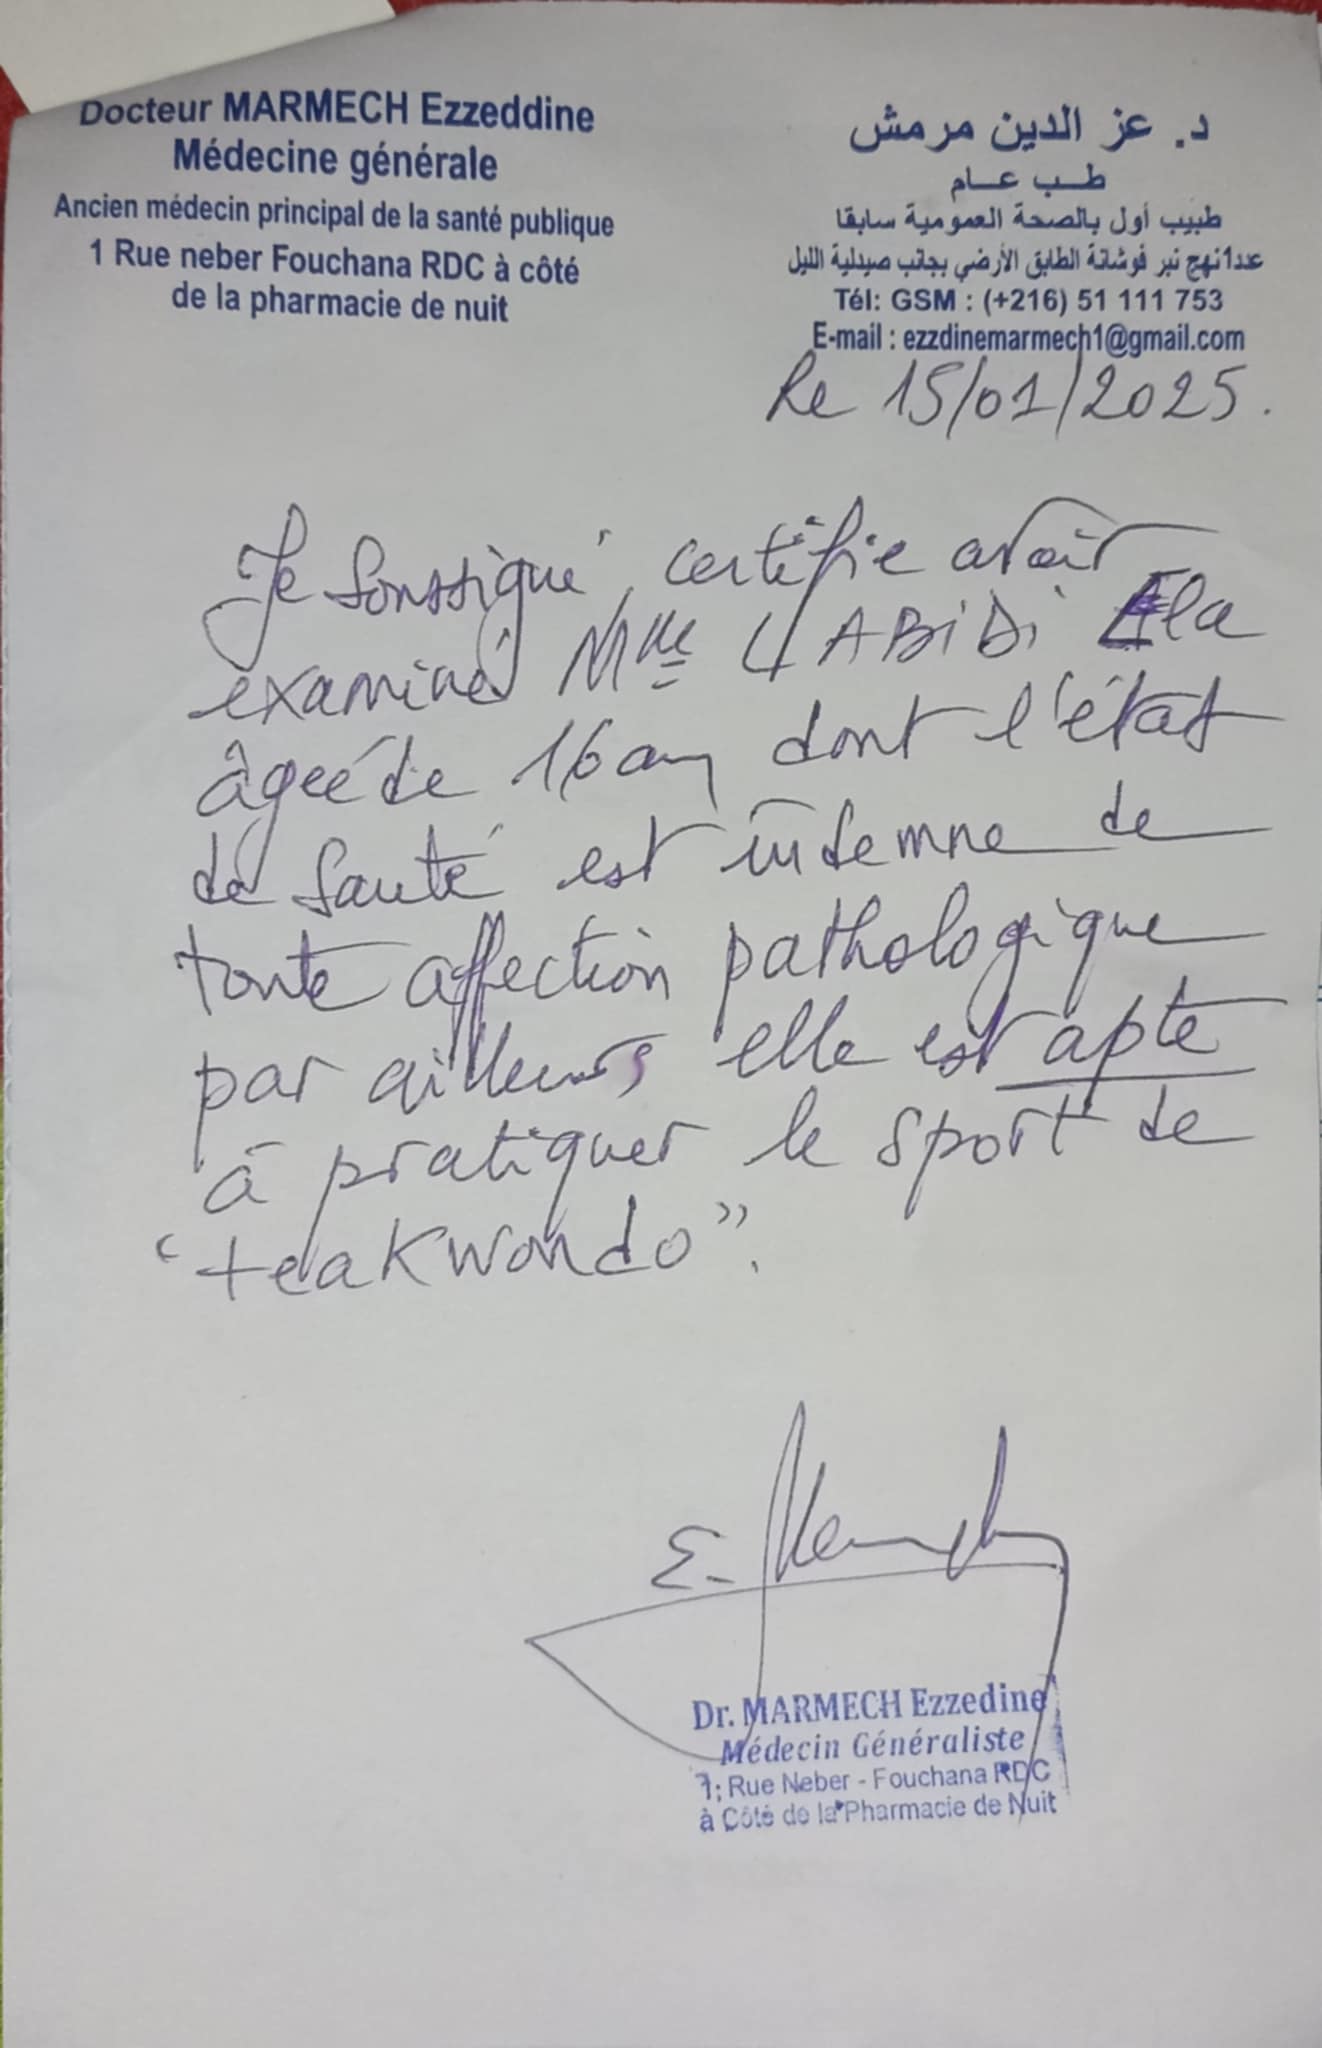 Docteur MARMECH Ezzeddine
Médecine générale
Ancien médecin principal de la santé publique
1 Rue neber Fouchana RDC à côté
de la pharmacie de nuit
د. عز الدين مرمش
طب عام
طبيب أول بالصحة العمومية سابقا
عدد1نهج نبر فوشانة الطابق الأرضي بجانب صيدلية الليل
Tél: GSM : (+216) 51 111 753
E-mail : ezzdinemarmech1@gmail.com
Le 15/01/2025.
Je soussigné, certifie avoir
examiné Mlle LABIDI Ela
âgée de 16 ans dont l'état
de santé est indemne de
toute affection pathologique
par ailleurs elle est apte
à pratiquer le sport de
"teakwondo".
Dr. MARMECH Ezzedine
Médecin Généraliste
1; Rue Neber - Fouchana RDC
à Côté de la Pharmacie de Nuit